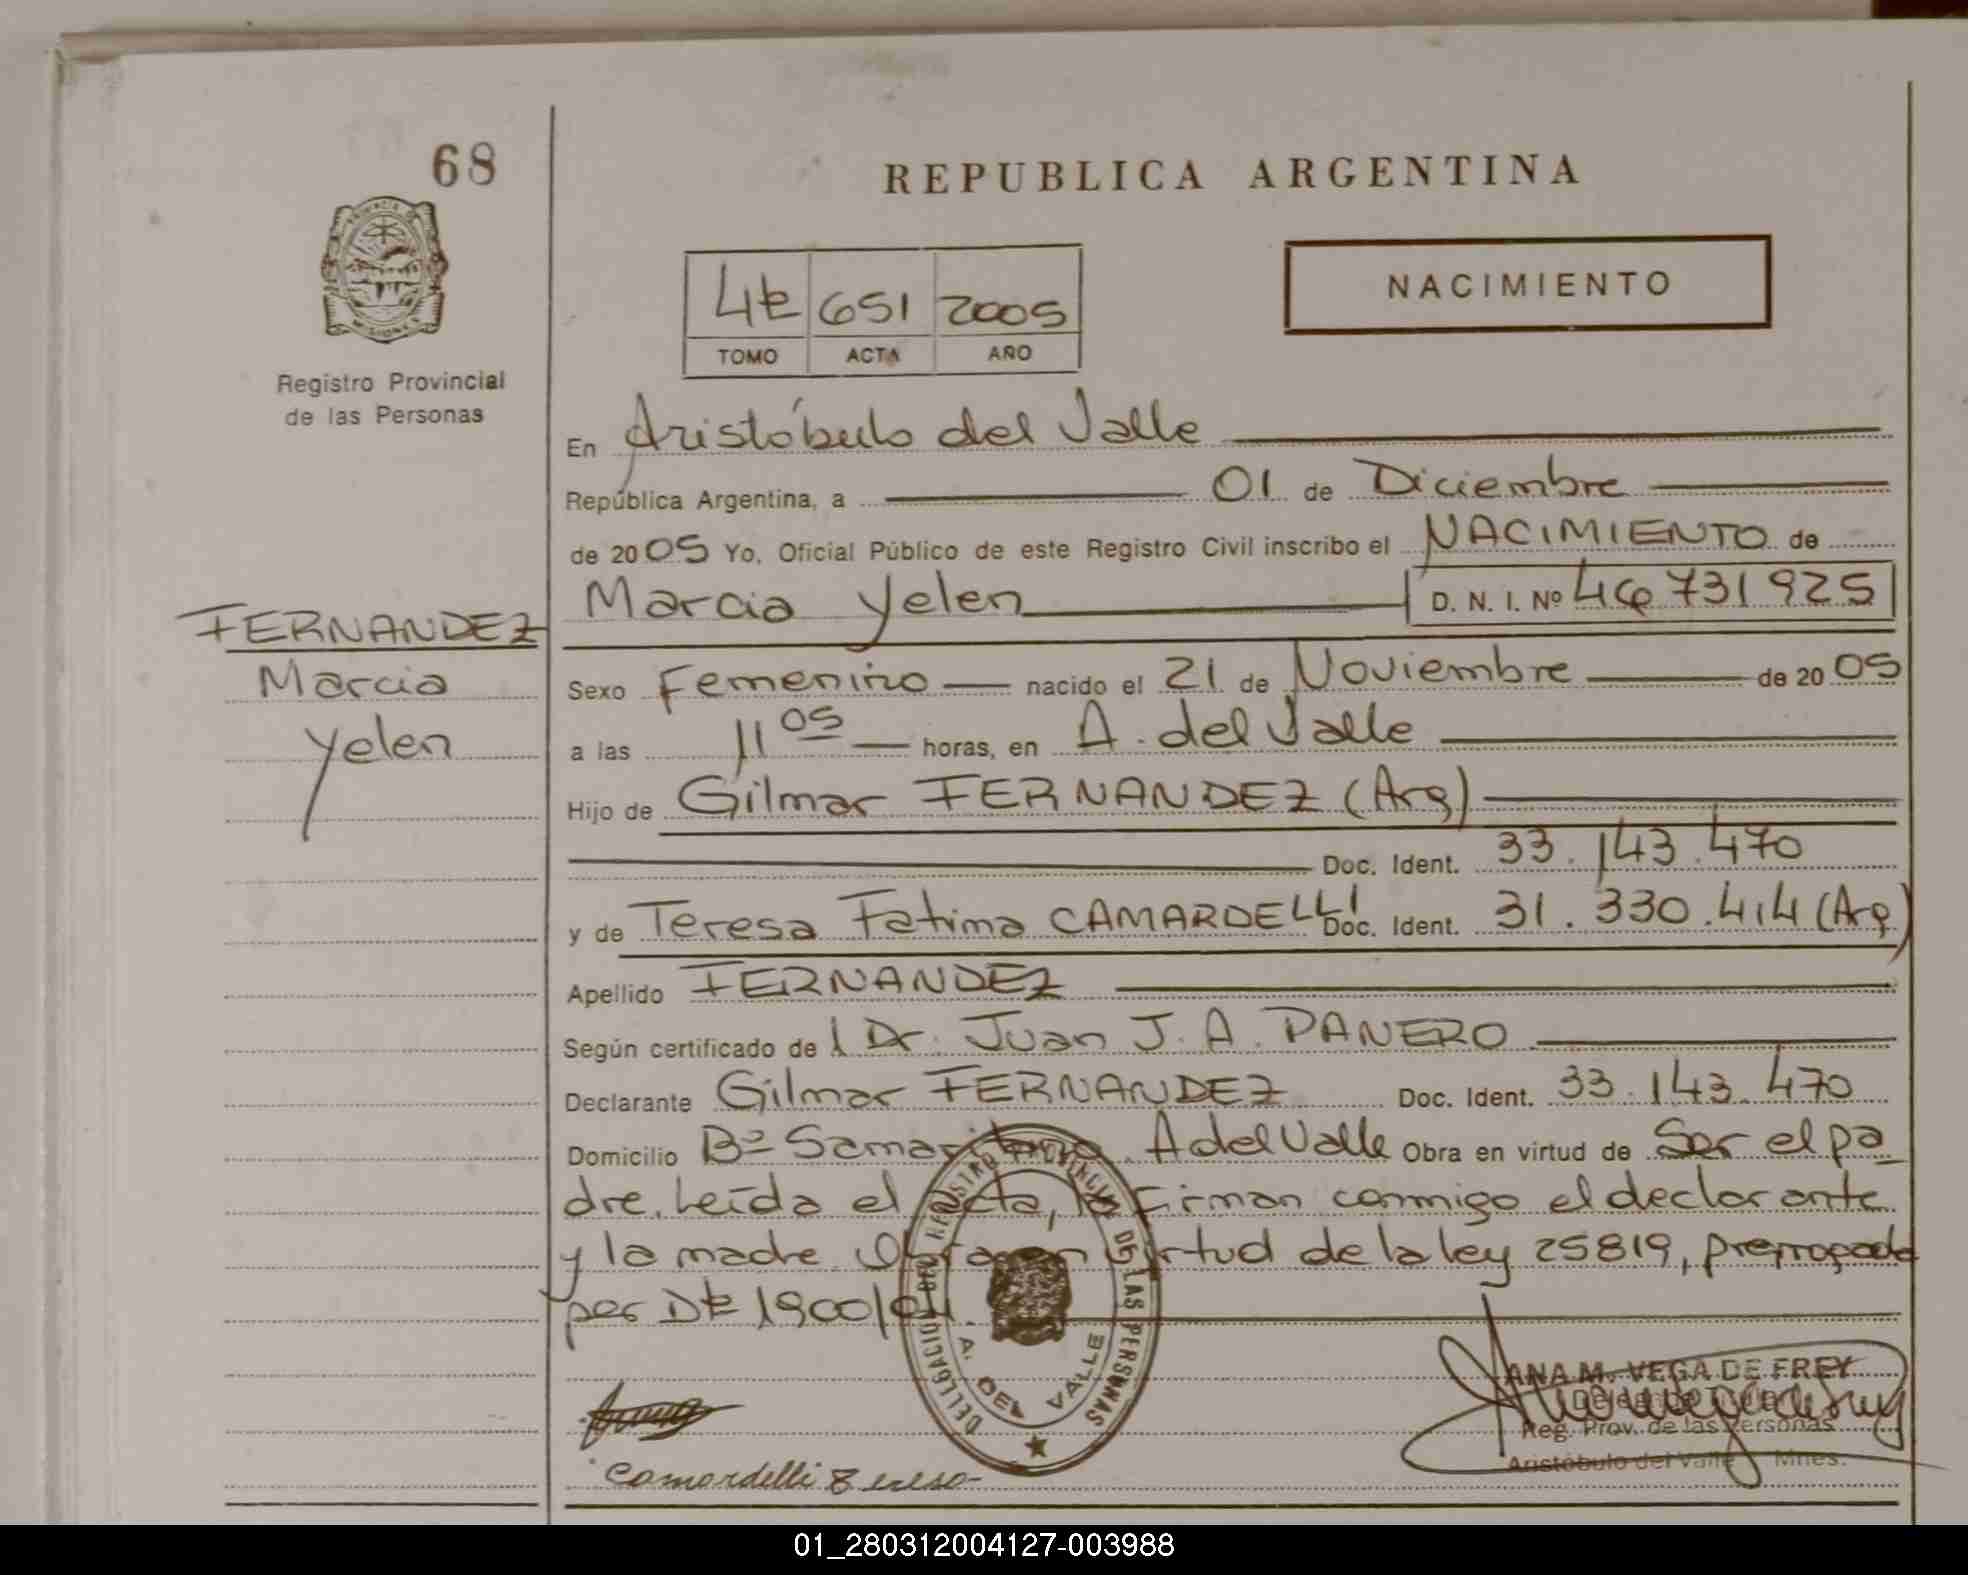 68
REPUBLICA ARGENTINA
NACIMIENTO
4t 651 2005
TOMO ACTA AÑO
PROVINCIA DE MISIONES
Registro Provincial
de las Personas
En Aristóbulo del Valle
República Argentina, a 01 de Diciembre
de 2005 Yo, Oficial Público de este Registro Civil inscribo el NACIMIENTO de
Marcia Yelen D. N. I. Nº 46 731 925
FERNANDEZ
Marcia
Yelen
Sexo Femenino nacido el 21 de Noviembre de 2005
a las 11 05 horas, en A. del Valle
Hijo de Gilmar FERNANDEZ (Arg)
Doc. Ident. 33.143.470
y de Teresa Fatima CAMARDELLI Doc. Ident. 31.330.414 (Arg)
Apellido FERNANDEZ
Según certificado de l Dr. Juan J. A. PANERO
Declarante Gilmar FERNANDEZ Doc. Ident. 33.143.470
Domicilio Bº Samaritano A del Valle Obra en virtud de Ser el pa
dre. Leída el acta, la firman conmigo el declarante
y la madre. Obra en virtud de la ley 25819, prorrogada
por Dt 1900/04.
DELEGACION DEL REGISTRO PROVINCIAL DE LAS PERSONAS
A. DEL VALLE
ANA M. VEGA DE FREY
Reg. Prov. de las Personas
Aristóbulo del Valle Mnes.
Camardelli Teresa
01_280312004127-003988